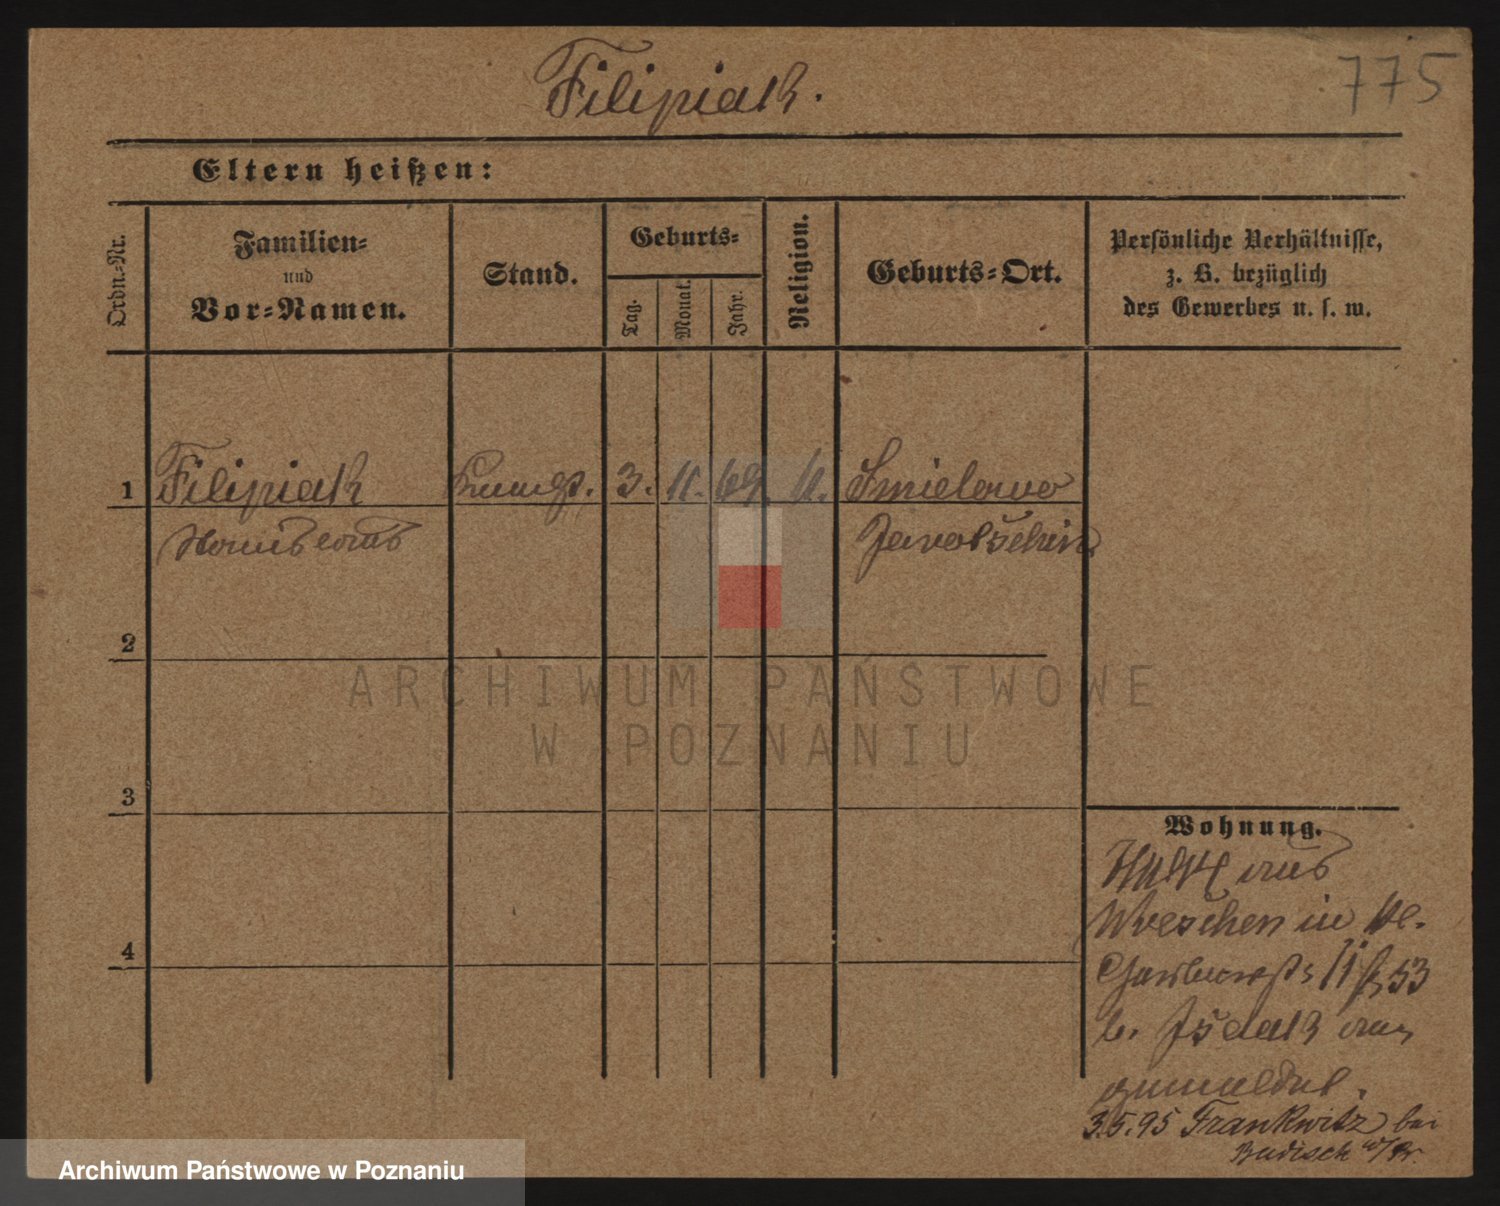 Filipiak.
775
Eltern heißen:
Ordn.-Nr.
Familien-
und
Vor-Namen.
Stand.
Geburts-
Tag.
Monat.
Jahr.
Religion.
Geburts-Ort.
Persönliche Verhältnisse,
z. B. bezüglich
des Gewerbes u. s. w.
1
Filipiak
3. 11. 69.
Smielowo
Jarotschin
2
3
4
Wohnung.
aus
Wreschen in
53
b. Isaak an
gemeldet.
3.5.95 Frankwitz bei
ARCHIWUM PAŃSTWOWE
W POZNANIU
Archiwum Państwowe w Poznaniu